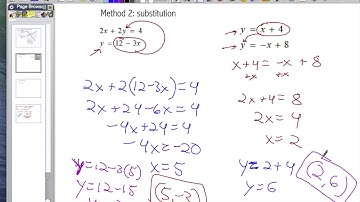 Page Browser
Method 2: substitution
2x + 2y = 4
y = 12 - 3x
2x + 2(12-3x) = 4
2x + 24 - 6x = 4
-4x + 24 = 4
-4x = -20
x = 5
y = 12 - 3(5)
y = 12 - 15
(5, -3)
y = x + 4
y = -x + 8
x + 4 = -x + 8
+x +x
2x + 4 = 8
2x = 4
x = 2
y = 2 + 4
y = 6
(2, 6)